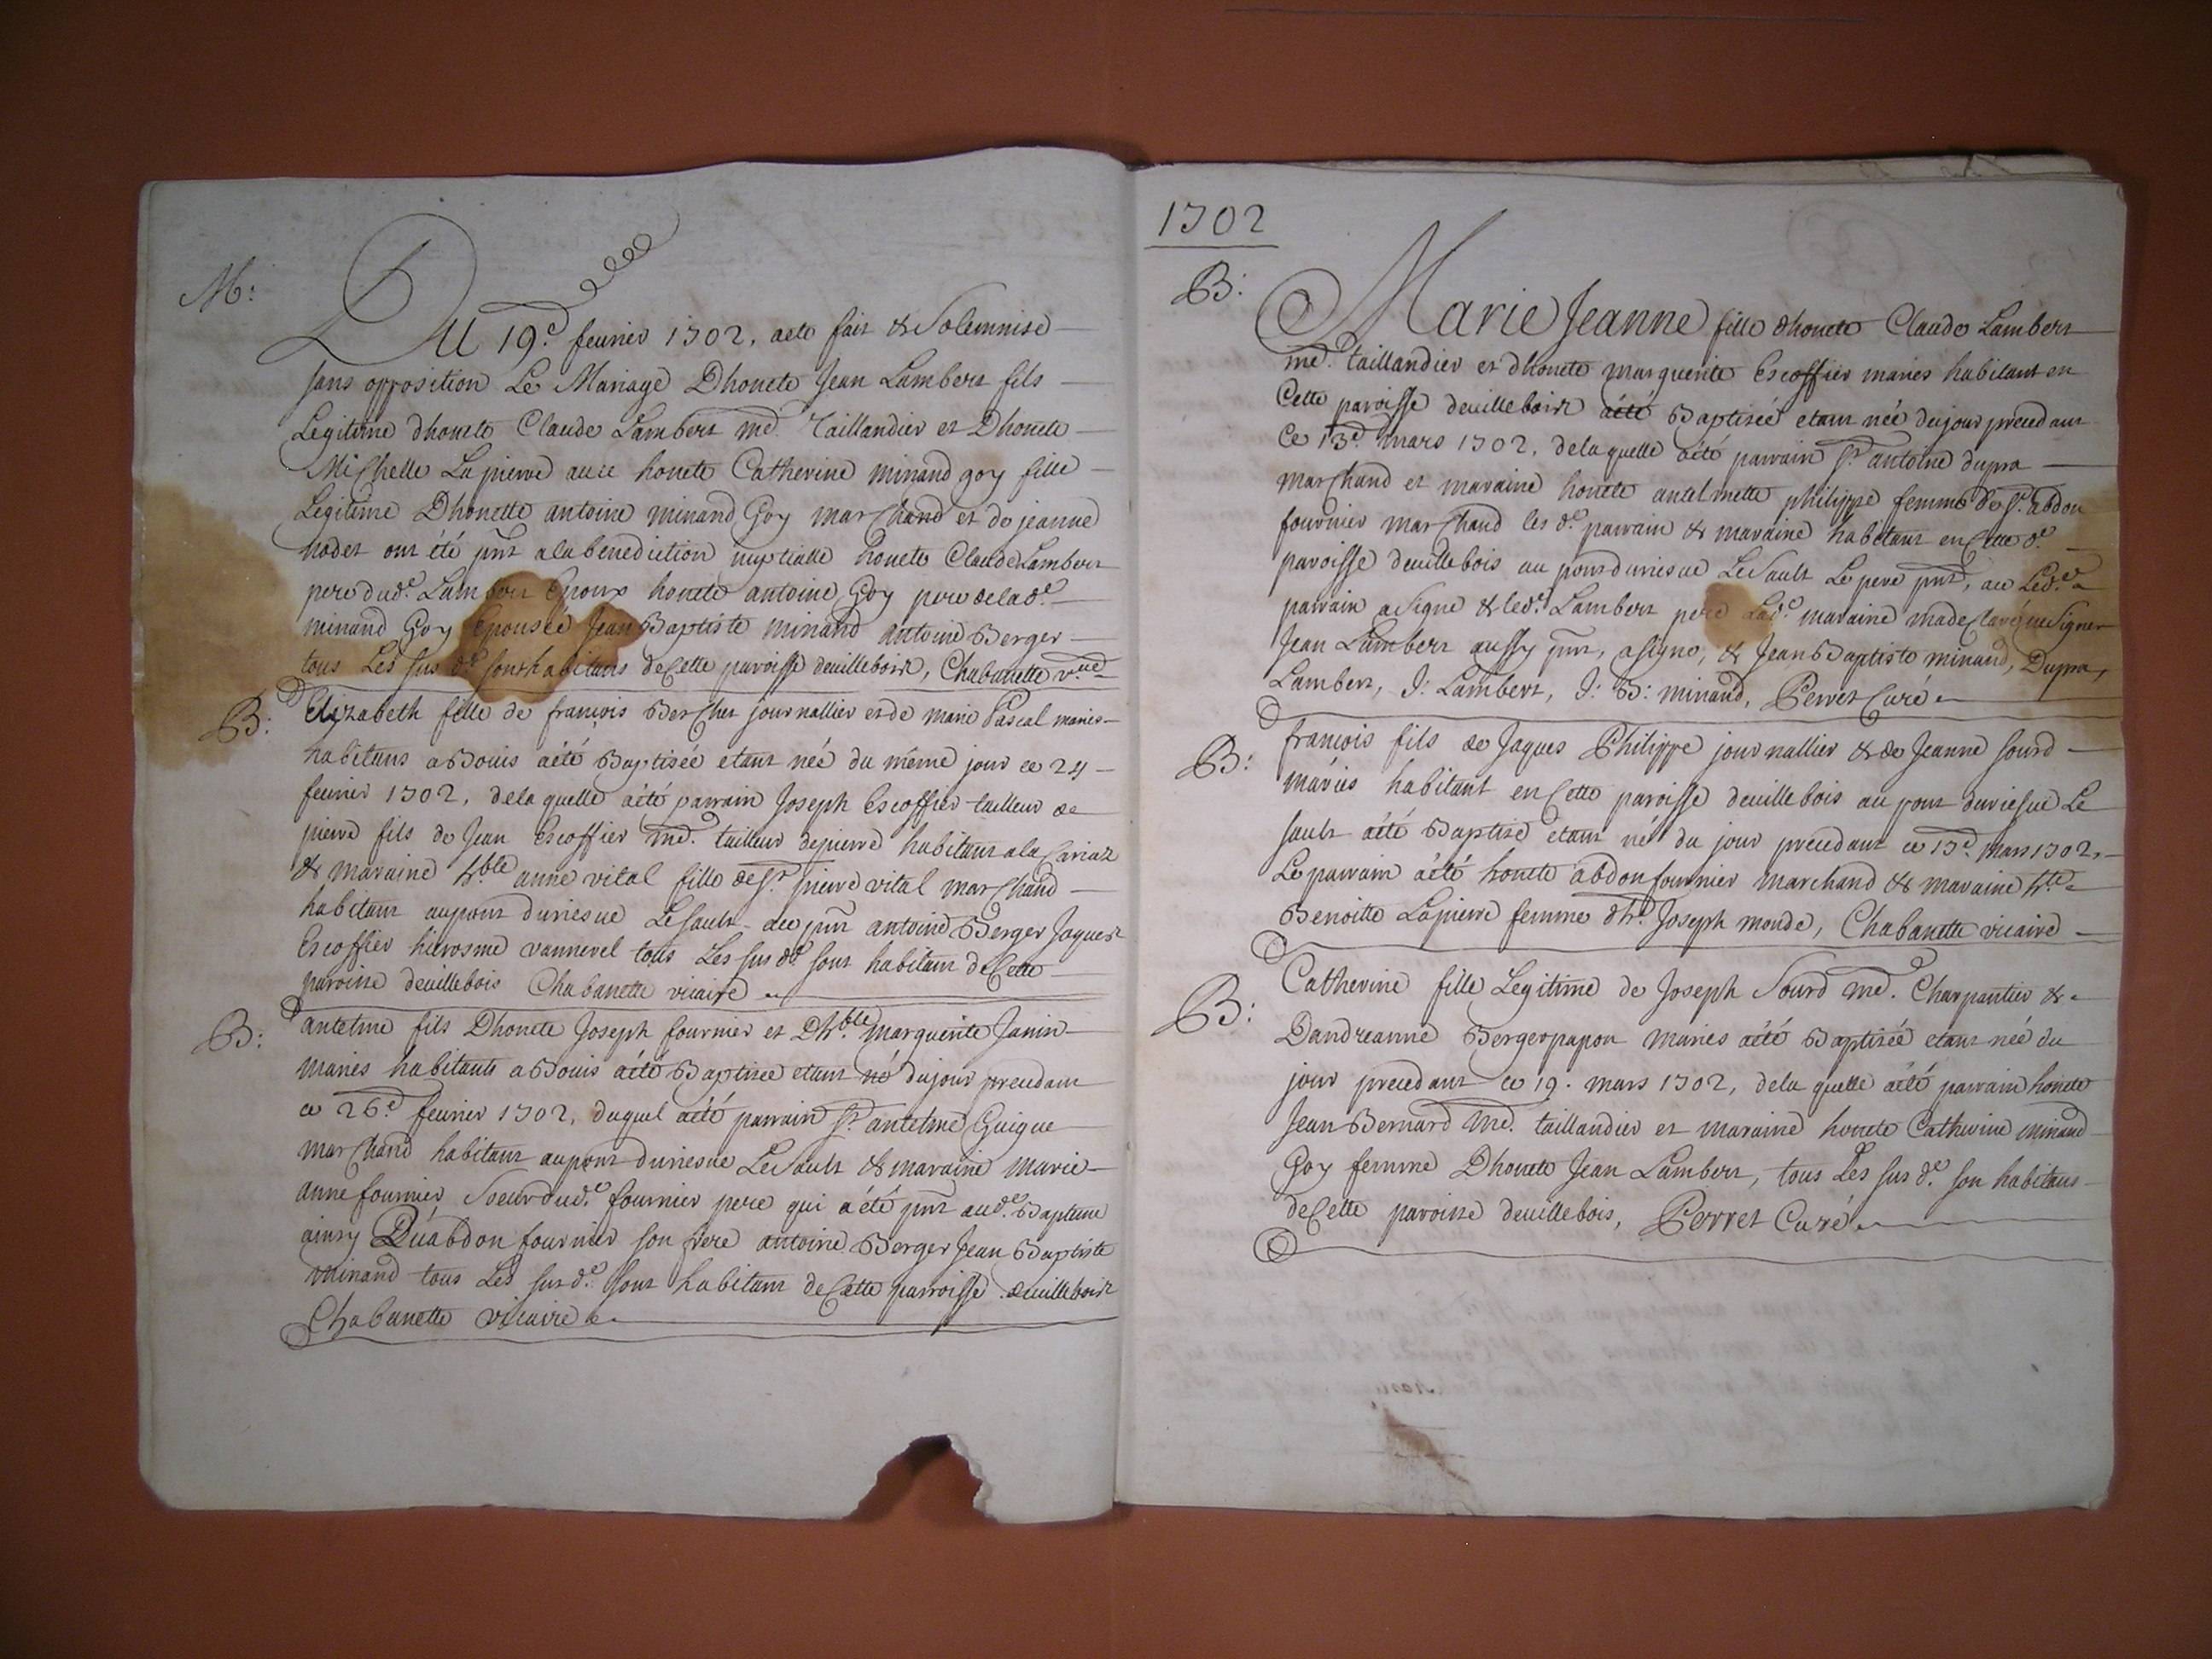 M:
DU 19e. feurier 1702, aete fait & Solemnise
sans opposition Le Mariage Dhonete Jean Lambert fils
Legitime dhonete Claude Lambert me. Taillandier et Dhonete
Michelle Lapierre auec honete Catherine minand goy fille
Legitime Dhonette antoine minand Goy marchand et de jeanne
nodet ont été pnt ala benediction nuptialle honete Claude Lambert
pere dud.e Lambert Epoux honete antoine Goy pere delad.e
minand Goy Epousée Jean Baptiste minand antoine Berger
tous Les sus d.e sont habitans de Cette paroisse deuillebois, Chabanette v.re
B: Elizabeth fille de françois Bercher journallier et de marie Pascal maries
habitans a Bouis aété Baptisée etant née du même jour ce 24
feurier 1702, dela quelle aété parrain Joseph Escoffier tailleur de
pierre fils de Jean Escoffier me. tailleur depierre habitant ala Cariaz
& maraine h.ble anne vital fille de Sr. pierre vital marchand
habitant aupont duriesue Le Sault aee pnt antoine Berger Jaques
Escoffier hierosme vannerel tous Les sus d.e sont habitant de Cette
paroisse deuillebois Chabanette vicaire
B: antelme fils Dhonete Joseph fournier et Dh.ble marguerite Janin
maries habitants a Bouis aété Baptisee etant né dujour precedant
ce 26e. feurier 1702, duquel aété parrain Sr. antelme Guigue
marchand habitant aupont duriesue Le Sault & maraine marie
anne fournier Soeur dud.e fournier pere qui a été pnt aud.e Bapteme
ainsy Quabdon fournier son frere antoine Berger Jean Baptiste
minand tous Les sus d.e sont habitant de Cette parroisse deuillebois
Chabanette vicaire
1702
B: Marie Jeanne fille dhonete Claude Lambert
me. taillandier et dhonete marguerite Escoffier maries habitant en
Cette paroisse deuillebois aété Baptisée etant née dujour precedant
Ce 13e. mars 1702, delaquelle aété parrain Sr. antoine dupra
marchand et maraine honete antelmette philippe femme de Sr. abdon
fournier marchand les d.e parrain & maraine habitant en Cette d.e
paroisse deuillebois au pont duriesue Le Sault Le pere pnt, aee Led.e
parrain a Signe & led.e Lambert pere Lad.e maraine ma declaré ne Signer
Jean Lambert aussy pnt, asigne, & Jean Baptiste minand, Dupra,
Lambert, J: Lambert, J: B: minand, Perret Curé
B: françois fils de Jaques Philippe journallier & de Jeanne sourd
maries habitant en Cette paroisse deuillebois au pont duriesue Le
Sault aété Baptisé etant né du jour precedant ce 15e. mars 1702,
Le parrain aété honete abdon fournier marchand & maraine h.te
Benoitte Lapierre femme dh.e Joseph monde, Chabanette vicaire
B: Catherine fille Legitime de Joseph Sourd me. Charpantier &
Dandreanne Bergerpapon maries aété Baptisée etant née du
jour precedant ce 19. mars 1702, dela quelle aété parrain honete
Jean Bernard me. taillandier et maraine honete Catherine minand
Goy femme Dhonete Jean Lambert, tous Les sus d.e son habitans
de Cette paroisse deuillebois, Perret Curé